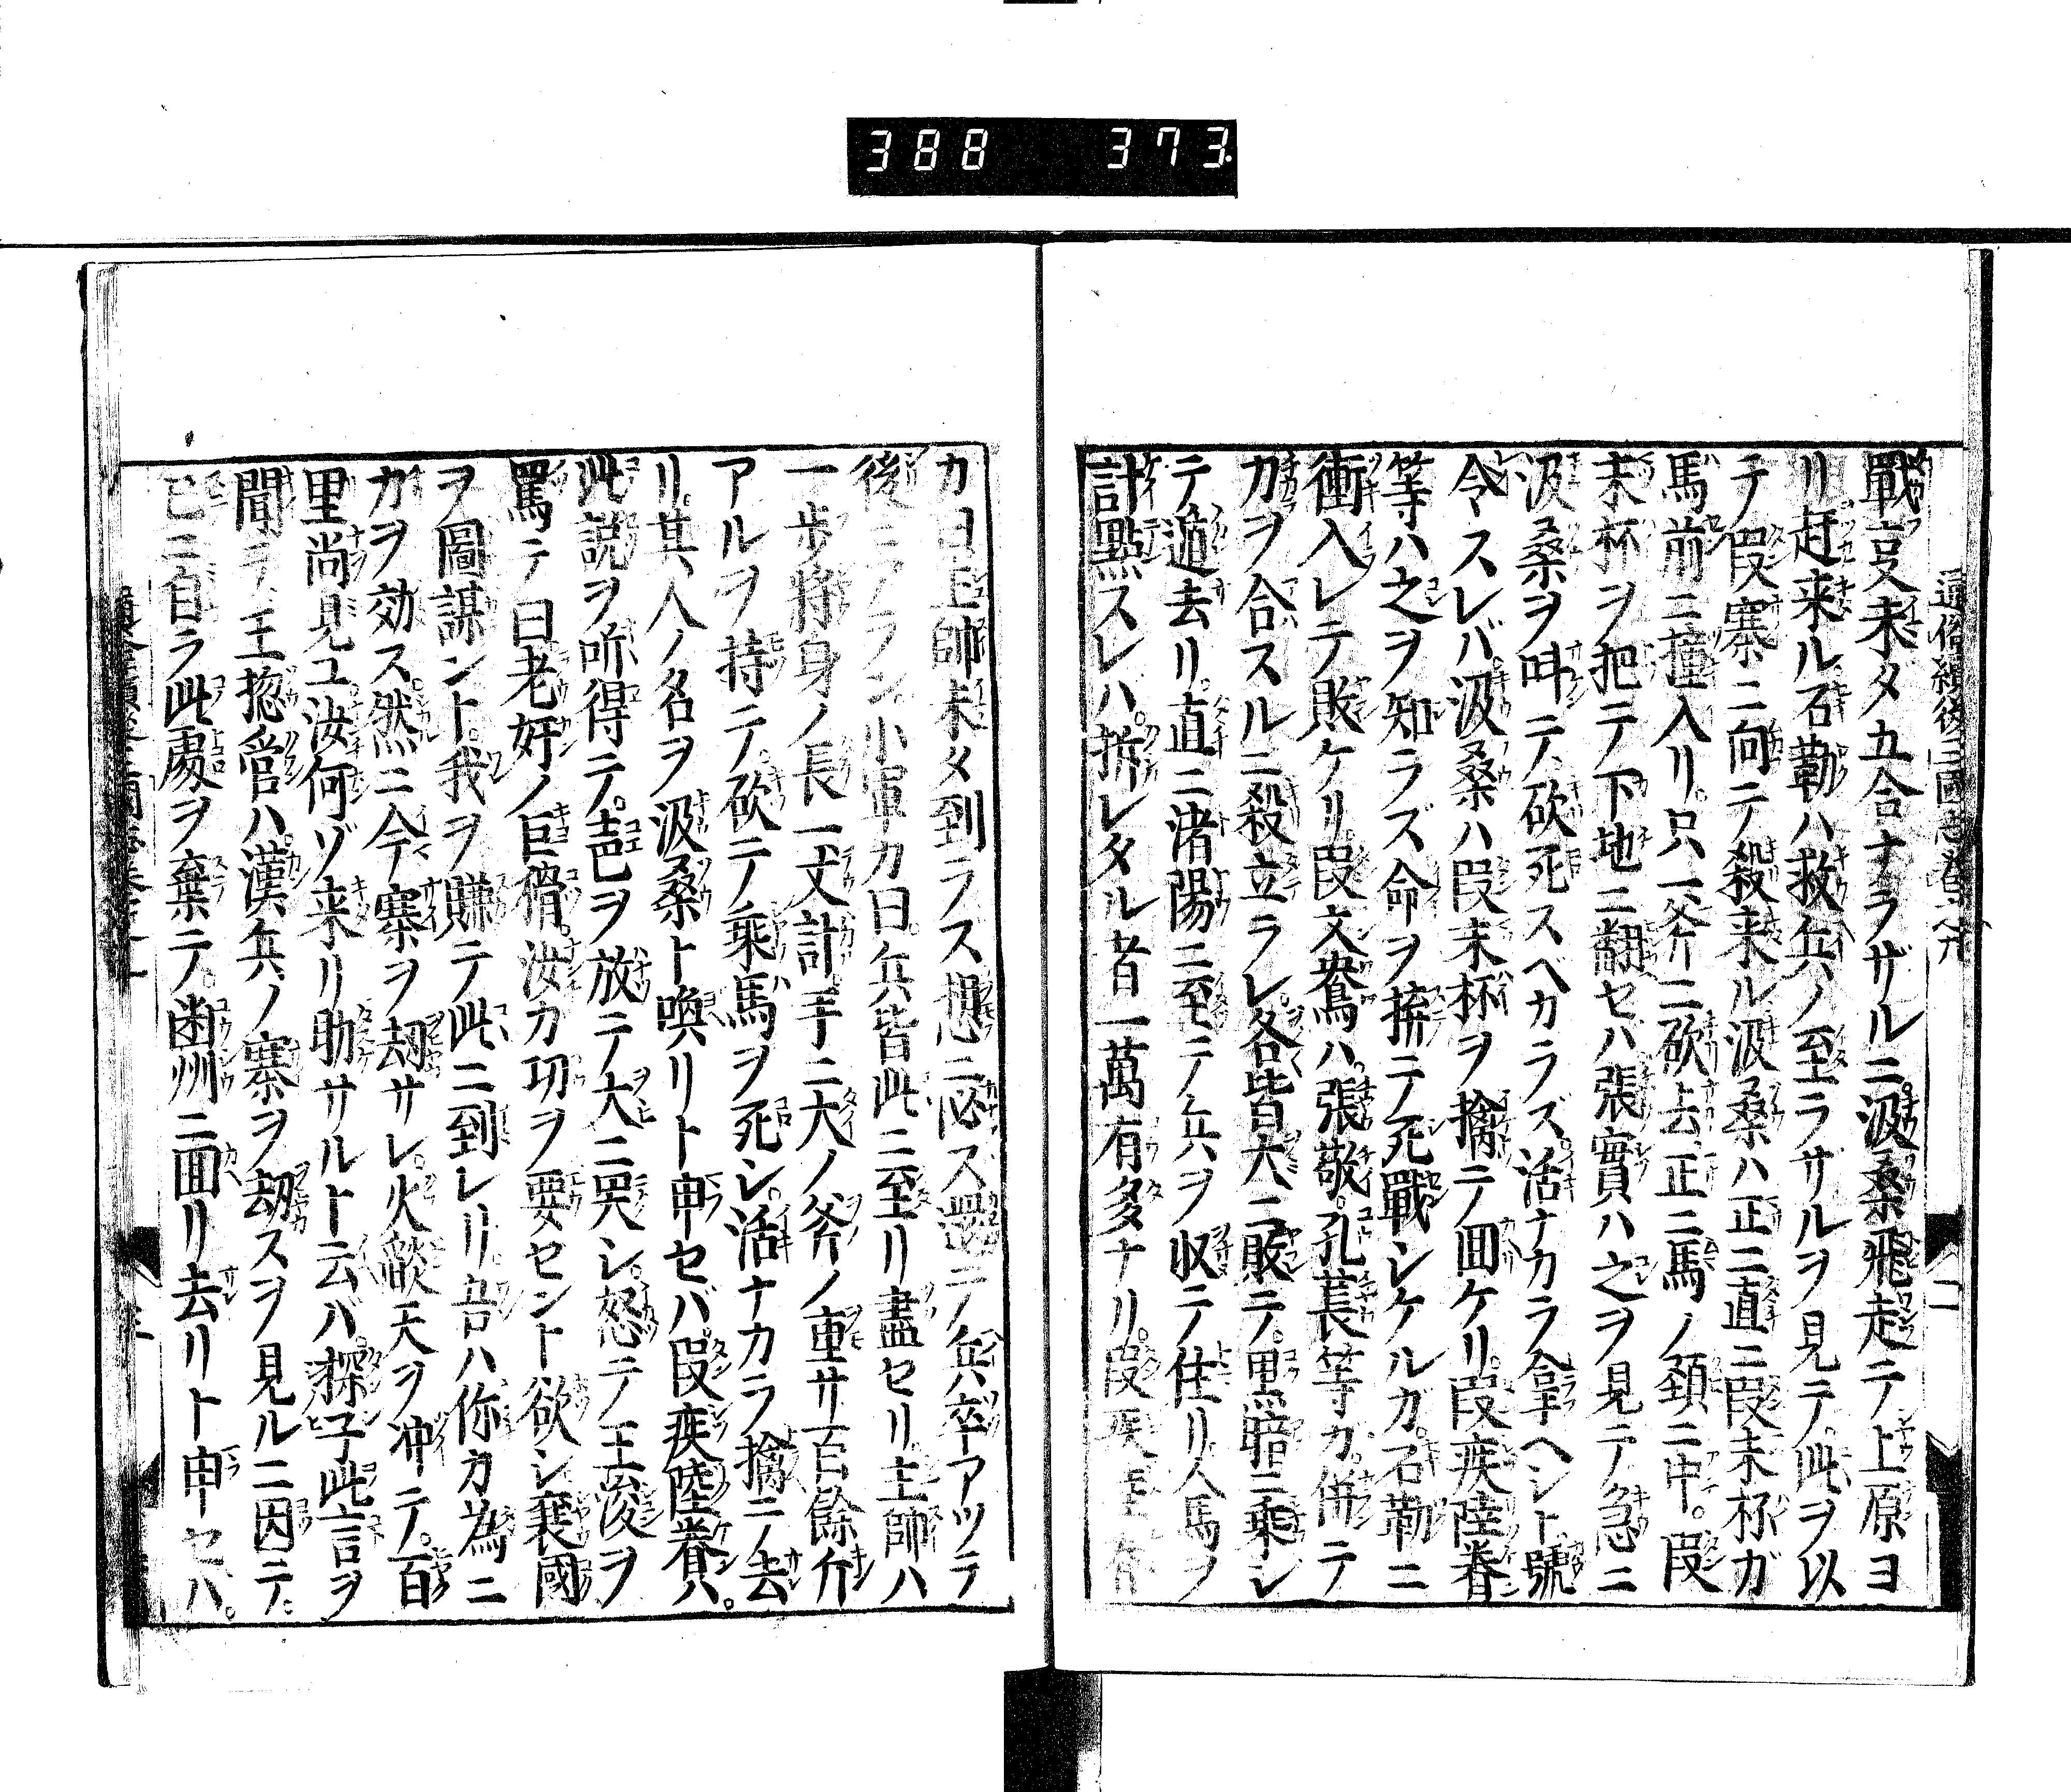 388 373
通俗續後三國志
戰フ支未タ五合ナラザルニ。汲桑飛走テ上原ヨ
リ赶来ル石勒ハ救兵ノ至ラサルヲ見テ。此ヲ以
テ叚寨ニ向テ殺来ル汲桑ハ正ニ直ニ叚末杯ガ
馬前ニ撞入リ。只一斧ニ砍去正ニ馬ノ頚ニ中。叚
末杯ヲ把テ下地ニ翻セバ張實ハ之ヲ見テ急ニ
汲桑ヲ呌テ砍死スベカラズ。活ナカラ拿ヘント。號
令スレバ汲桑ハ叚末杯ヲ擒テ回ケリ。叚疾陸眷
等ハ之ヲ知ラズ命ヲ捹テ死戰シケルガ。石勒ニ
衝入レテ敗ケリ。叚文鴦ハ。張敬。孔萇等カ。併テ
力ヲ合スルニ殺立ラレ。各皆大ニ敗テ。黒暗ニ乗シ
テ遁去リ。直ニ渚陽ニ至テ兵ヲ収テ住リ人馬ヲ
計點スレハ。折レタル者一萬有多ナリ。叚疾陸眷
カ曰主帥未タ到ラス想ニ必ス罷テ兵卒アツテ
後ニアラン小軍カ曰。兵皆此ニ至リ盡セリ。主帥ハ
一歩將身ノ長一丈計手ニ大ノ斧ノ重サ百餘斤
アルヲ持テ。砍テ乘馬ヲ死シ。活ナカラ擒ニノ去
リ。其人ノ名ヲ汲桑ト喚リト申セバ。叚疾陸眷ハ。
此説ヲ听得テ。聲ヲ放テ大ニ哭シ。怒テ王浚ヲ
罵テ曰老奸ノ巨猾。汝カ功ヲ要セント欲シ襄國
ヲ圖謀ント。我ヲ賺テ此ニ到レリ。吾ハ你カ為ニ
力ヲ効ス。然ニ今寨ヲ刼サレ。火燄天ヲ冲テ。百
里尚見ユ汝何ゾ来リ助サルト云バ。探子此言ヲ
聞テ。王㧾管ハ。漢兵ノ寨ヲ刼スヲ見ルニ因テ。
已ニ自ラ此處ヲ棄テ。幽州ニ回リ去リト申セハ。